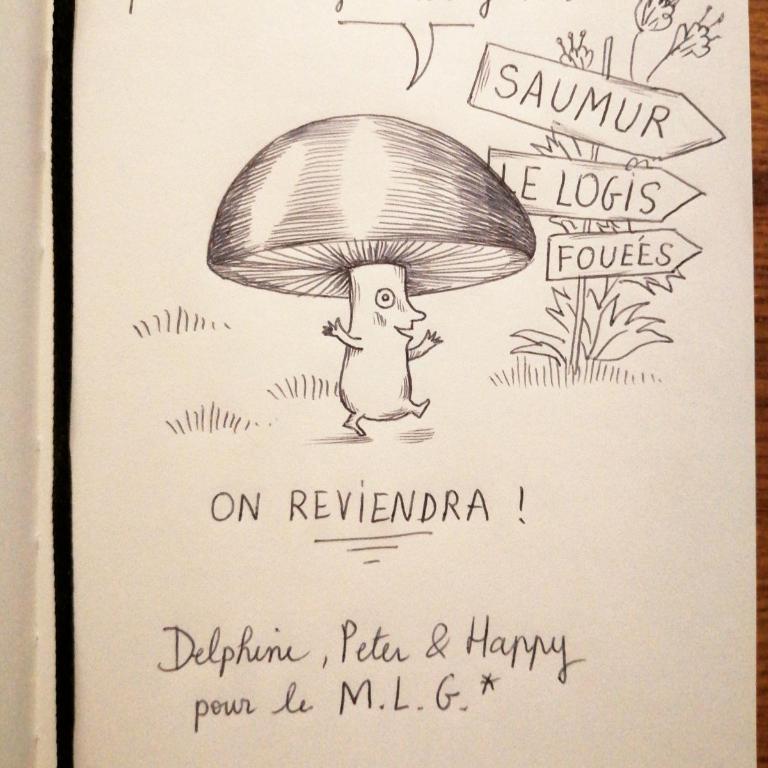 SAUMUR
LE LOGIS
FOUEÉS
ON REVIENDRA !
Delphine, Peter & Happy
pour le M.L.G.*